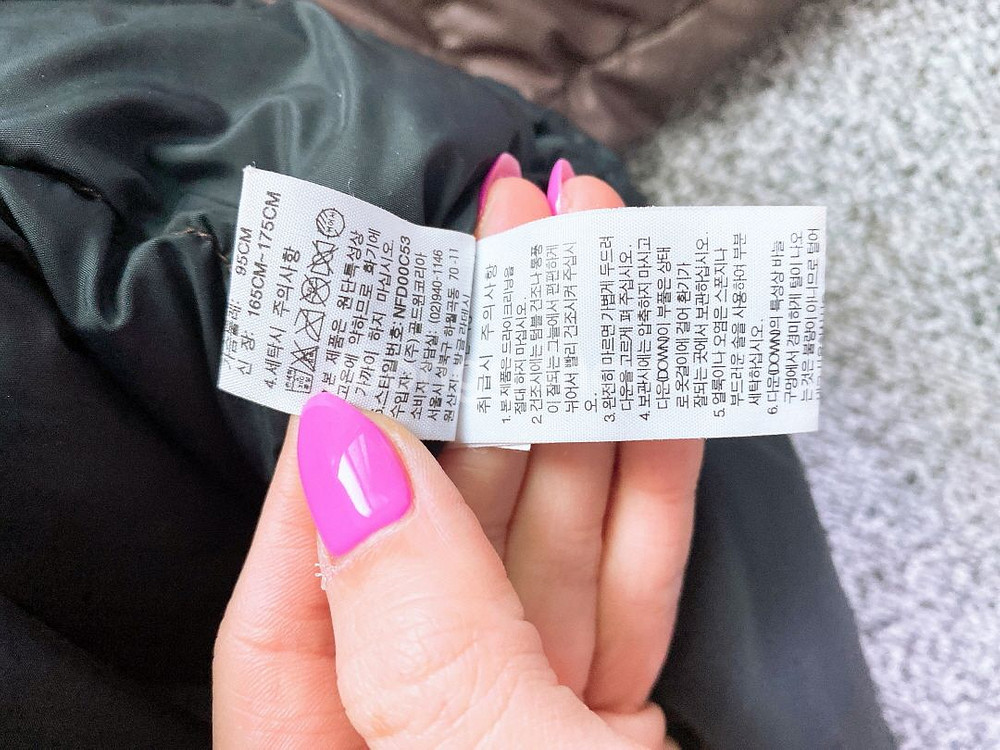 가슴둘레: 95CM
신 장: 165CM-175CM
4.세탁시 주의사항
본 제품은 원단특성상
고온에 약하므로 화기에
가까이 하지 마십시오.
스타일번호: NFD00C53
수입자: (주)골드윈코리아
소비자 상담실: (02)940-1146
서울시 성북구 하월곡동 70-11
원산지: 방글라데시
취급시 주의사항
1.본 제품은 드라이크리닝을
절대 하지 마십시오.
2 건조시에는 텀블 건조나 통풍
이 잘되는 그늘에서 편편하게
뉘어서 빨리 건조시켜 주십시
오.
3.완전히 마르면 가볍게 두드려
다운을 고르게 펴 주십시오.
4.보관시에는 압축하지 마시고
다운(DOWN)이 부풀은 상태
로 옷걸이에 걸어 화기가
잘되는 곳에서 보관하십시오.
5.얼룩이나 오염은 스폰지나
부드러운 솔을 사용하여 부분
세탁하십시오.
6.다운(DOWN)의 특성상 바늘
구멍에서 경미하게 털이 나오
는 것은 불량이 아니므로 털어